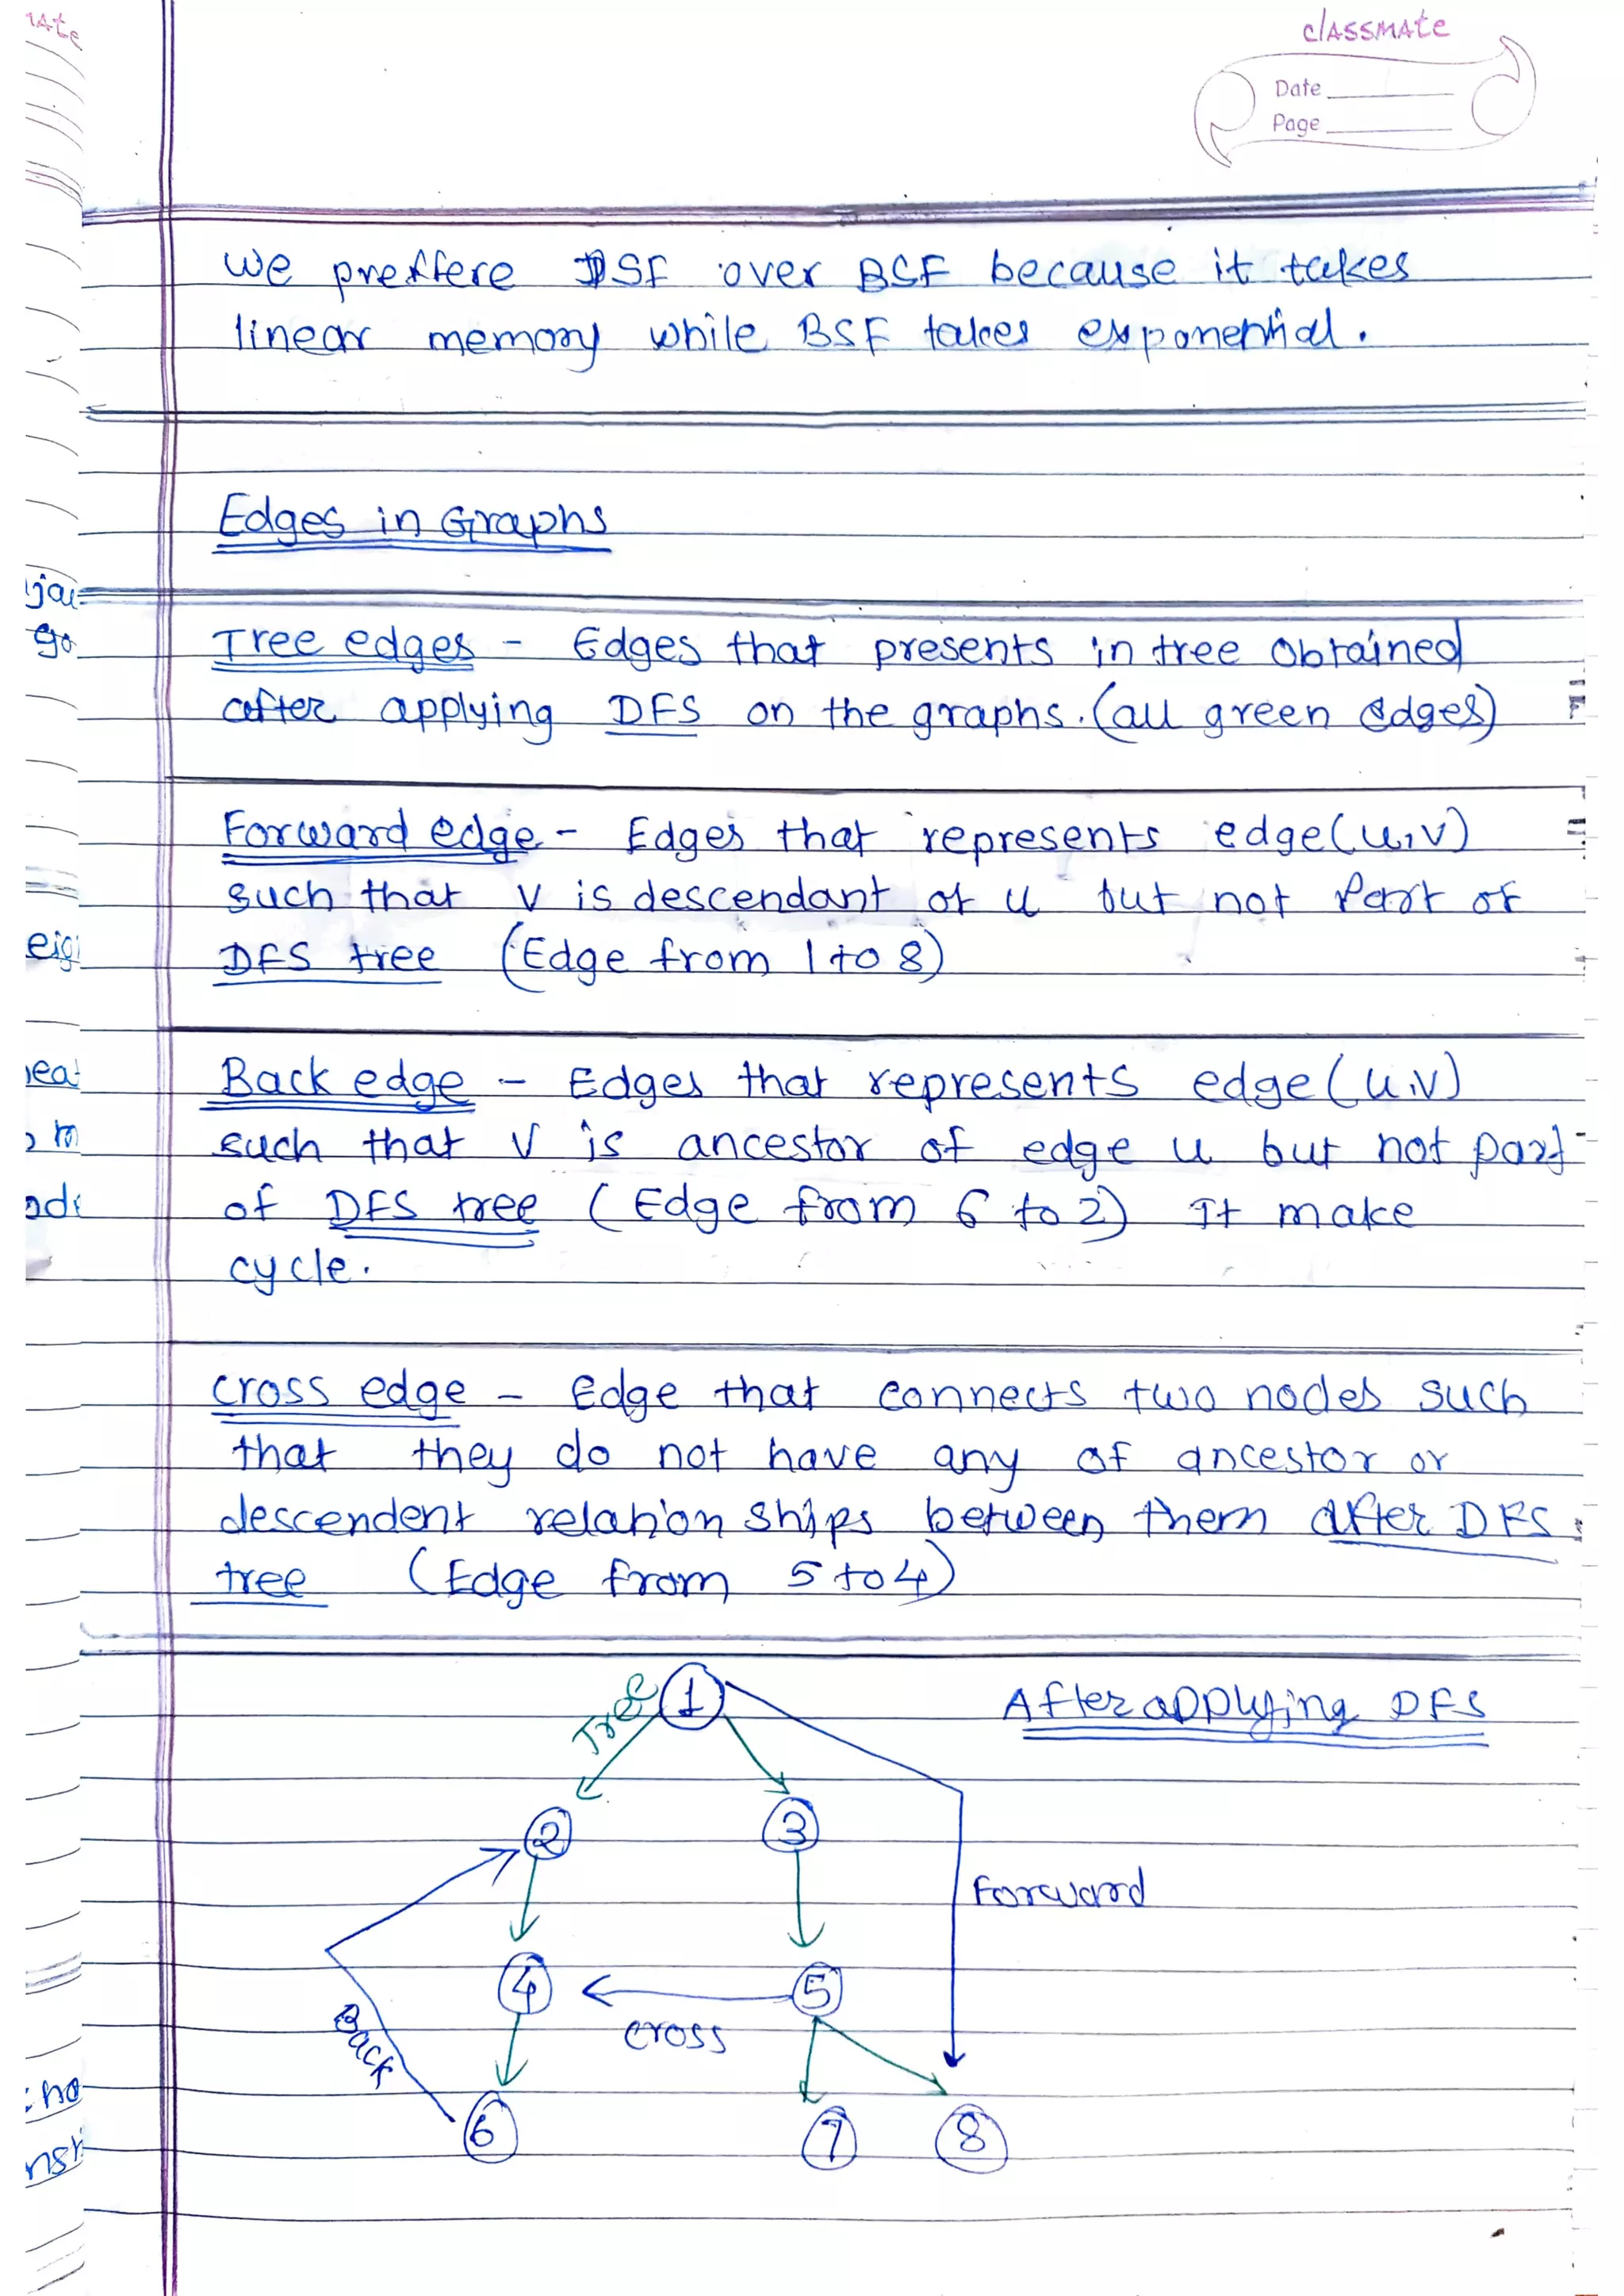 classmate
Date
Page
we preffere DSF over BSF because it takes
linear memory while BSF takes exponential.
Edges in Graphs
Tree edges - Edges that presents in tree obtained
after applying DFS on the graphs. (all green edges)
Forward edge - Edges that represents edge(u,v)
such that v is descendant of u but not Part of
DFS tree (Edge from 1 to 8)
Back edge - Edges that represents edge (u,v)
such that v is ancestor of edge u but not part
of DFS tree (Edge from 6 to 2) It make
cycle.
cross edge - Edge that connects two nodes such
that they do not have any of ancestor or
descendent relation ships between them after DFS
tree (Edge from 5 to 4)
After applying DFS
Tree
1
2
3
Forward
4
5
cross
Back
6
7
8